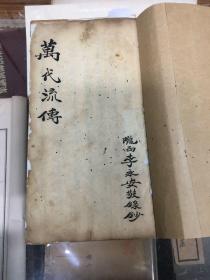 萬代流傳
隴西李永安敬錄鈔